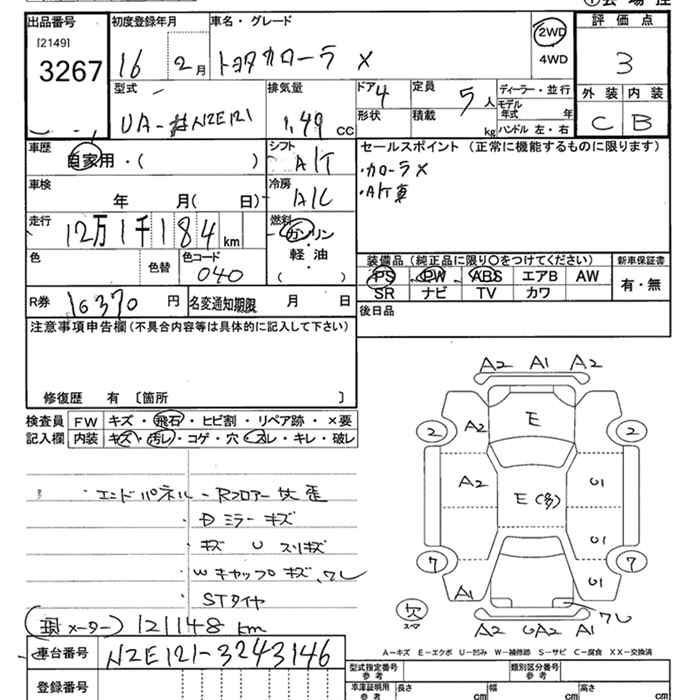 出品番号 初度登録年月 車名・グレード 評価点
[2149]
3267 16 2月 トヨタカローラ X 2WD 4WD 3
型式 排気量 ドア 4 定員 5人 ディーラー・並行 外装 内装
UA-NZE121 1.49 CC 形状 積載 kg モデル年式 年 C B
ハンドル 左・右
車歴 自家用・( ) シフト A/T セールスポイント(正常に機能するものに限ります)
・カローラX
車検 年 月( 日) 冷房 A/C ・A/T車
走行 12万1千184km 燃料 ガソリン
軽油
( )
色 色替 色コード 040
装備品(純正品に限り○をつけてください) 新車保証書
PS PW ABS エアB AW 有・無
SR ナビ TV カワ
R券 16370円 名変通知期限 月 日 後日品
注意事項申告欄(不具合内容等は具体的に記入して下さい)
修復歴 有〔箇所 〕
検査員 FW キズ・飛石・ヒビ割・リペア跡・×要
記入欄 内装 キズ・汚レ・コゲ・穴・スレ・キレ・破レ
A2 A1 A2
E
2 A2 2
A2 E(多) U1
U1
7 7
A1 U1
エンドパネル-Rフロアー 歪
・Dミラーキズ
・キズ U スリキズ
・Wキャップキズ、ワレ
・STタイヤ
(現メーター) 121148km
欠
スペア
ワレ
A2 UA2 A1
A-キズ E-エクボ U-凹み W-補修跡 S-サビ C-腐食 XX-交換済
車台番号 NZE121-3243146
登録番号
型式指定番号 参考 類別区分番号 参考
車庫証明用 参考 長さ cm 幅 cm 高さ cm